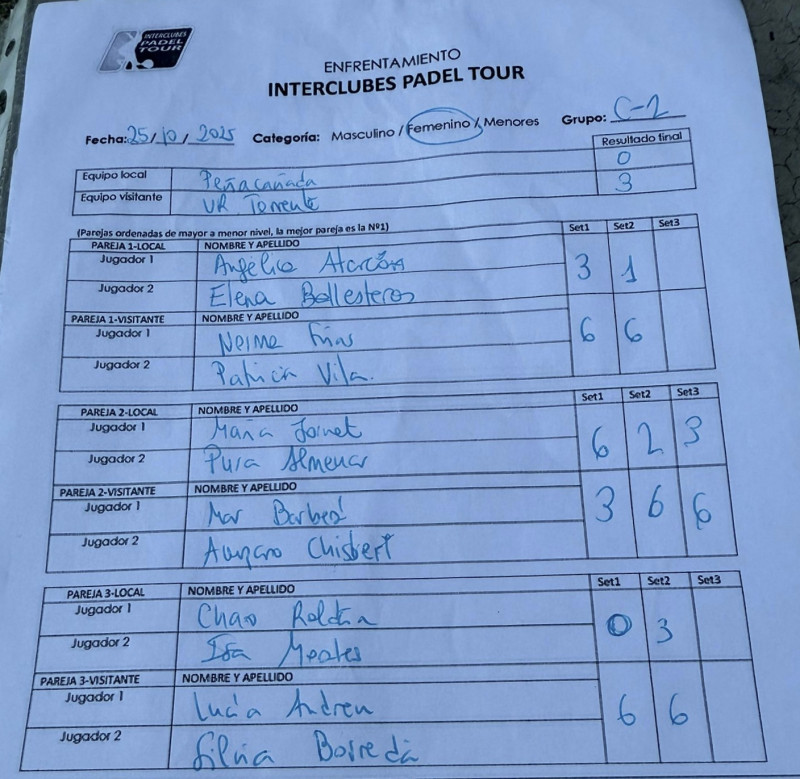 INTERCLUBES
PADEL
TOUR
ENFRENTAMIENTO
INTERCLUBES PADEL TOUR
Fecha: 25/10/2025 Categoría: Masculino / Femenino / Menores Grupo: C-2
Resultado final
Equipo local Peñacañada 0
Equipo visitante UR Torrente 3
(Parejas ordenadas de mayor a menor nivel, la mejor pareja es la Nº1) Set1 Set2 Set3
PAREJA 1-LOCAL NOMBRE Y APELLIDO
Jugador 1 Angélica Atarcón 3 1
Jugador 2 Elena Ballesteros
PAREJA 1-VISITANTE NOMBRE Y APELLIDO
Jugador 1 6 6
Jugador 2 Patricia Vila.
PAREJA 2-LOCAL NOMBRE Y APELLIDO Set1 Set2 Set3
Jugador 1 Maria Jornet 6 2 3
Jugador 2 Pura Almenar
PAREJA 2-VISITANTE NOMBRE Y APELLIDO
Jugador 1 Mar Barberá 3 6 6
Jugador 2 Amparo Chisbert
PAREJA 3-LOCAL NOMBRE Y APELLIDO Set1 Set2 Set3
Jugador 1 Charo Roldán 0 3
Jugador 2 Isa
PAREJA 3-VISITANTE NOMBRE Y APELLIDO
Jugador 1 Lucía Andreu 6 6
Jugador 2 Silvia Borredá